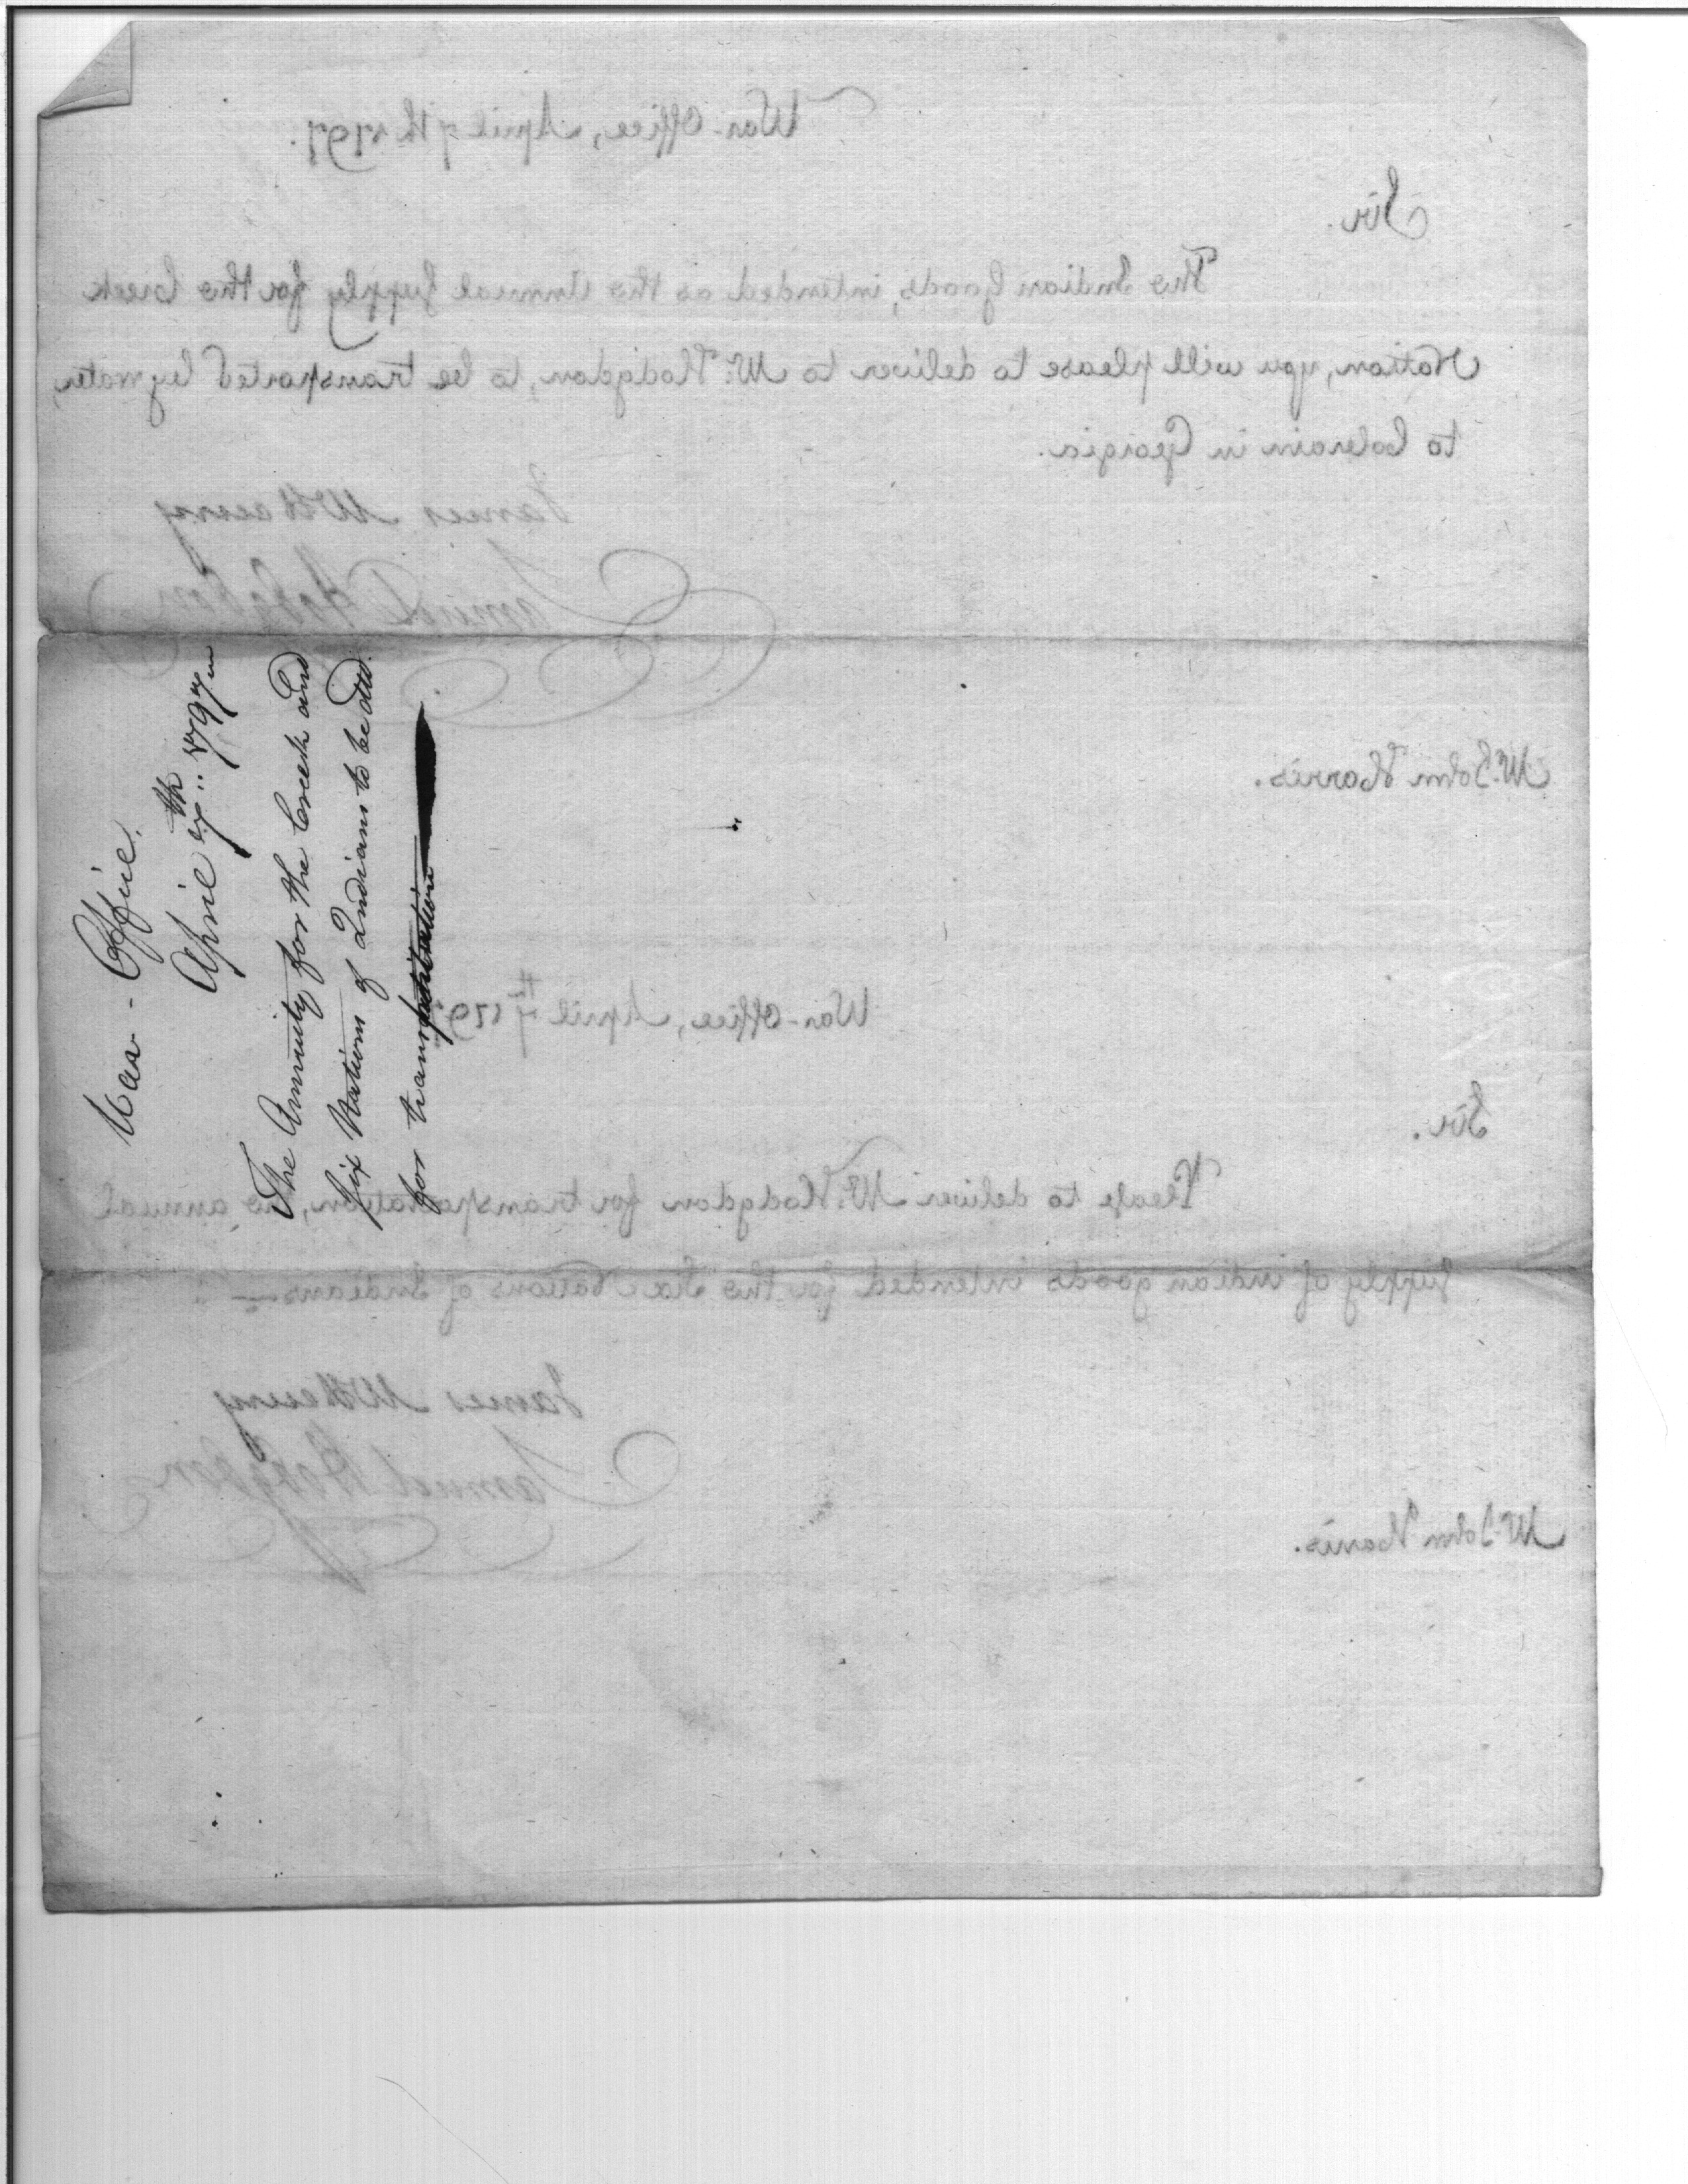 War-Office, April 7th 1797.
Sir.
The Indian Goods, intended as the Annual Supply for the Creek
Nation, you will please to deliver to Mr. Hodgdon, to be transported by water,
to Colerain in Georgia.
James McHenry
Samuel Hodgdon
Mr. John Harris.
War-Office, April 7th 1797
Sir.
Please to deliver Mr. Hodgdon for transportation, the annual
Supply of indian goods intended for the Six Nations of Indians—
James McHenry
Samuel Hodgdon
Mr. John Harris.
War - Office.
April 7th 1797
The Annuity for the Creek and
Six Nations of Indians to be
for transportation